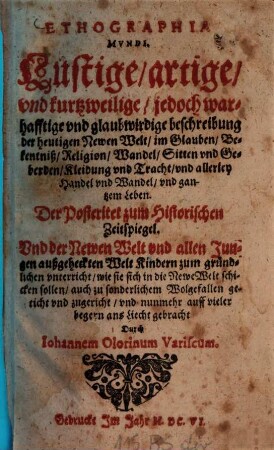 ETHOGRAPHIA
MVNDI.
Lustige/artige/
vnd kurtzweilige/jedoch war-
hafftige vnd glaubwirdige beschreibung
der heutigen Newen Welt/im Glauben/Be-
kentniß/Religion/Wandel/Sitten vnd Ge-
berden/Kleidung vnd Tracht/vnd allerley
Handel vnd Wandel/vnd gan-
tzem Leben.
Der Posteritet zum Historischen
Zeitspiegel.
Vnd der Newen Welt vnd allen Jun-
gen außgeheckten Welt Kindern zum gründ-
lichen vnterricht/wie sie sich in die Newe Welt schi-
cken sollen/auch zu sonderlichem Wolgefallen ge-
richt vnd zugericht/vnd nunmehr auff vieler
begern ans Liecht gebracht
Durch
Iohannem Olorinum Variscum.
Gedruckt Im Jahr M. DC. VI.